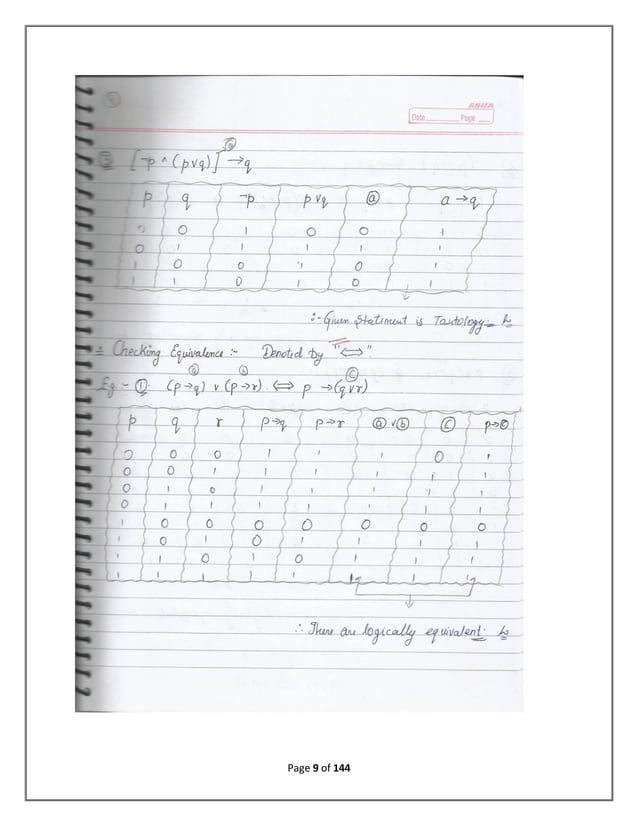 9
ASHA
Date Page
③ [¬p ∧ (p∨q)] → q
ⓐ
p q ¬p p∨q ⓐ a→q
0 0 1 0 0 1
0 1 1 1 1 1
1 0 0 1 0 1
1 1 0 1 0 1
∴ Given Statement is Tautology.
= Checking Equivalence :- Denoted by "⟺".
ⓐ ⓑ ⓒ
Eg :- ①. (p→q) ∨ (p→r). ⟺ p → (q∨r)
p q r p→q p→r ⓐ∨ⓑ ⓒ p→ⓒ
0 0 0 1 1 1 0 1
0 0 1 1 1 1 1 1
0 1 0 1 1 1 1 1
0 1 1 1 1 1 1 1
1 0 0 0 0 0 0 0
1 0 1 0 1 1 1 1
1 1 0 1 0 1 1 1
1 1 1 1 1 1 1 1
∴ There are logically equivalent.
Page 9 of 144